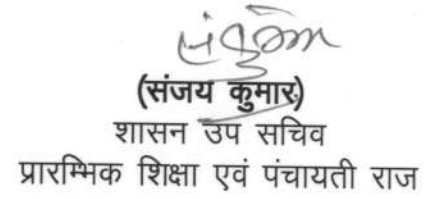 (संजय कुमार)
शासन उप सचिव
प्रारम्भिक शिक्षा एवं पंचायती राज